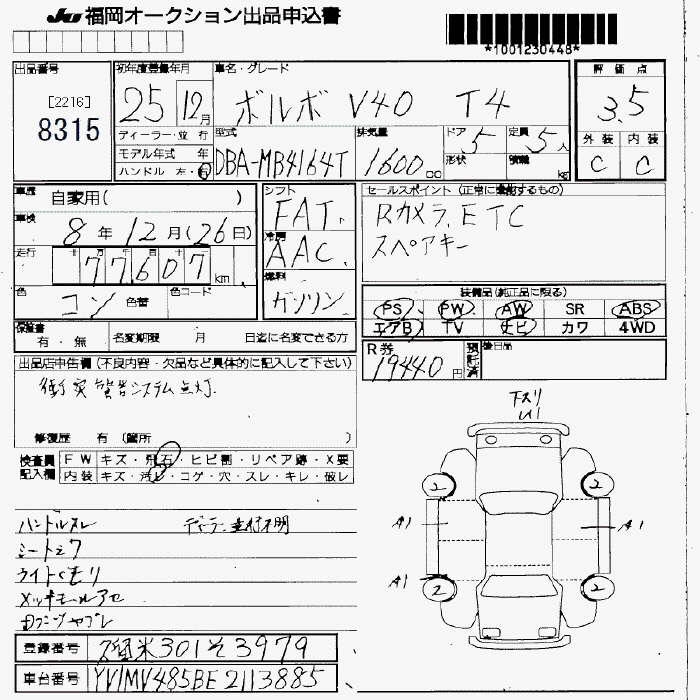 JU 福岡オークション出品申込書
*1001230448*
出品番号
[2216]
8315
初年度登録年月
25 12月
車名・グレード
ボルボ V40 T4
評価点
3.5
外装 内装
C C
ディーラー・並行
モデル年式 年
ハンドル 左・右
型式
DBA-MB4164T
排気量
1600 cc
ドア 5
形状
定員 5人
積載 kg
車歴 自家用( )
車検 8年12月(26日)
走行 77607 km
色 コン 色替
色コード
シフト FAT
冷房 AAC
燃料 ガソリン
セールスポイント (正常に機能するもの)
Rカメラ、ETC
スペアキー
装備品(純正品に限る)
PS PW AW SR ABS
エアB TV ナビ カワ 4WD
保証書 有・無
名変期限 月 日迄に名変できる方
R券 19440円
預託済
後日品
出品店申告欄 (不良内容・欠品など具体的に記入して下さい)
衝突警告システム点灯
修復歴 有 (箇所 )
検査員記入欄
FW キズ・飛石・ヒビ割・リペア跡・X要
内装 キズ・汚レ・コゲ・穴・スレ・キレ・破レ
下スリ
2 2
A1 A1
A1
2 2
ハンドルスレ ディーラー、並行不明
シートシワ
ライトくモリ
メッキモールアセ
登録番号 久留米301そ3979
車台番号 YV1MV485BE2113885